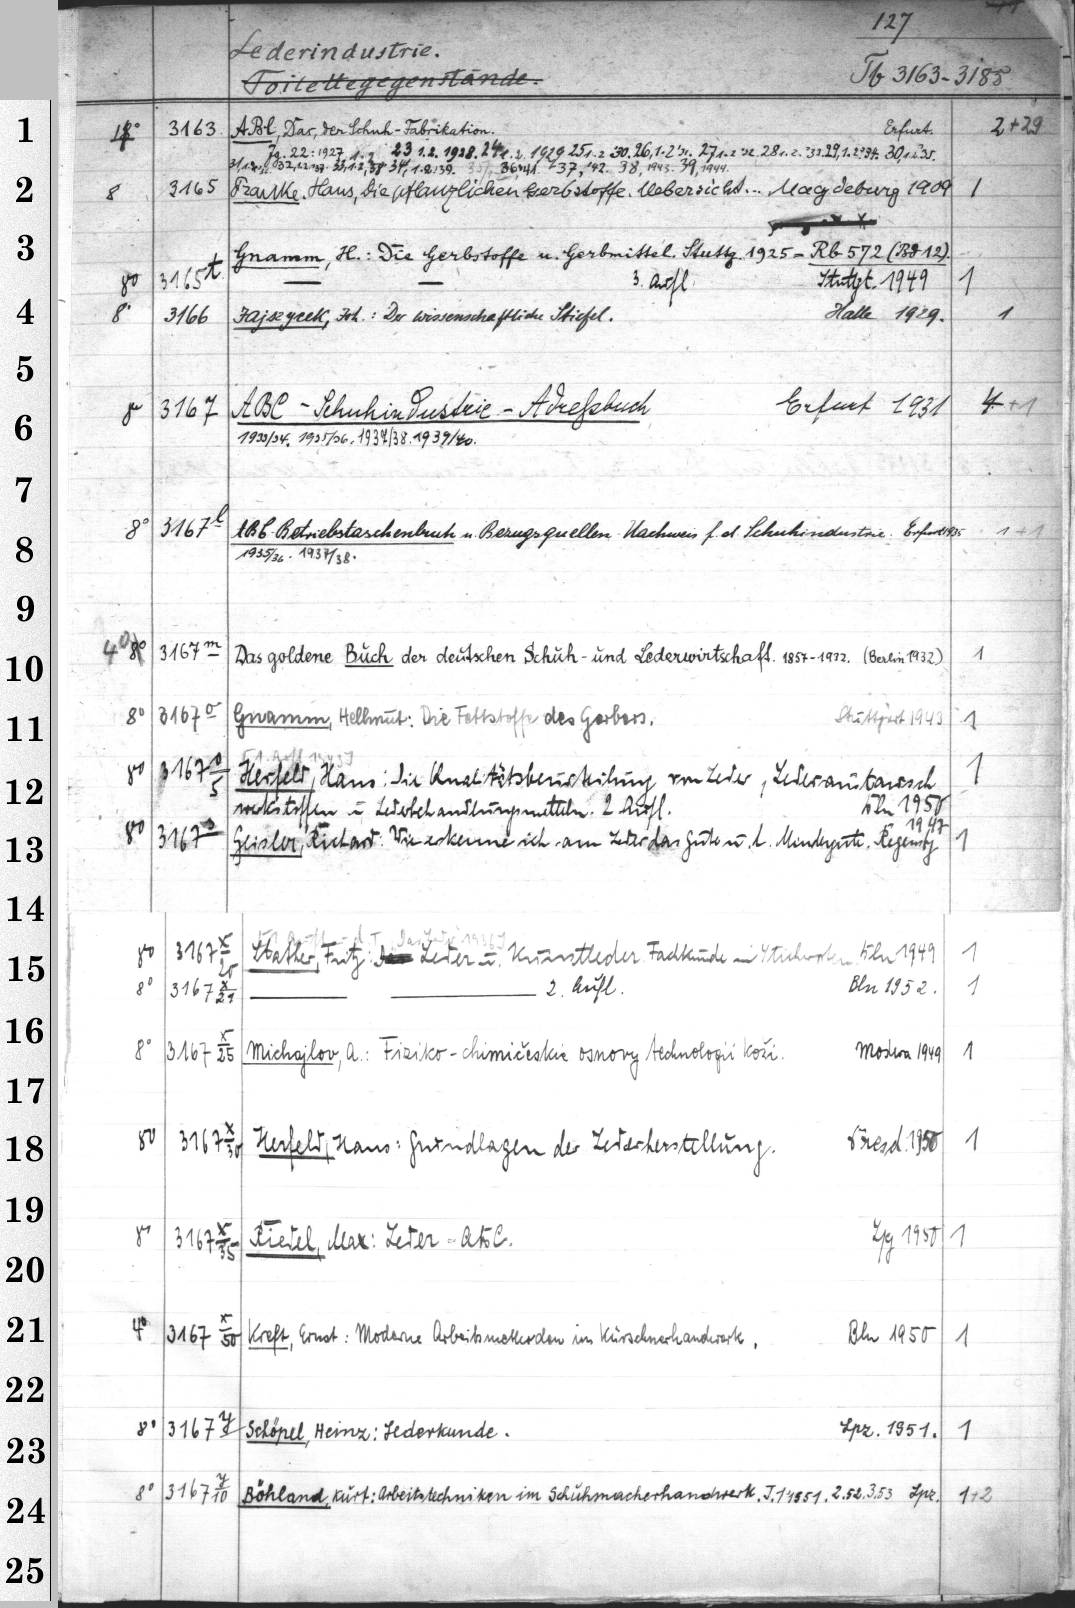 127
Lederindustrie.
Toilettegegenstände.
Tb 3163-3185
1 3163 ABC, Das, der Schuh-Fabrikation. Erfurt. 2+29
Jg. 22: 1927, 23 1.2. 1928. 24, 1.2. 1929 25 1.2 30. 26, 1.2 27 1.2 28 1.2. 29, 1.2 34. 30 1.2 35.
36, 37, 42. 38, 1943. 39, 1944.
2 8 3165 Franke, Hans, Die pflanzlichen Gerbstoffe. Uebersicht... Magdeburg 1909 1
3 Gnamm, H.: Die Gerbstoffe u. Gerbmittel. Stuttg. 1925 = Rb 572 (Bd 12).
8° 3165t — — 3. Aufl. Stuttgt. 1949 1
4 8° 3166 Zajszycek, Joh.: Der wissenschaftliche Stiefel. Halle 1929. 1
5
8° 3167 ABC-Schuhindustrie-Adreßbuch Erfurt 1931 4+1
6 1933/34. 1935/36. 1937/38. 1939/40.
7
8° 3167l ABC-Betriebstaschenbuch u. Bezugsquellen-Nachweis f. d. Schuhindustrie. Erfurt 1935 1+1
8 1935/36. 1937/38.
9
10 4° 8° 3167m Das goldene Buch der deutschen Schuh- und Lederwirtschaft. 1857-1932. (Berlin 1932) 1
11 8° 3167o Gnamm, Hellmut: Die Fettstoffe des Gerbers. Stuttgart 1943 1
12 8° 3167 o/5 Herfeld, Hans: Die Qualitätsbeurteilung von Leder, Lederaustausch 1
werkstoffen u. Lederbehandlungsmitteln. 2. Aufl. Bln 1950
13 8° 3167 Geisler, Richard: Wie erkenne ich am Leder das Gute u. d. Mindergute. Regensbg 1947 1
14
15 8° 3167 x/20 Stather, Fritz: Leder u. Kunstleder. Fachkunde in Stichworten Bln 1949 1
8° 3167 x/21 — — 2. Aufl. Bln 1952. 1
16 8° 3167 x/25 Michajlov, A.: Fiziko-chimičeskie osnovy technologii koži. Moskva 1949 1
17
18 8° 3167 x/30 Herfeld, Hans: Grundlagen der Lederherstellung. Dresd. 1950 1
19
8° 3167 x/35 Riedel, Max: Leder-ABC. Lpg 1950 1
20
21 4° 3167 x/50 Kreft, Ernst: Moderne Arbeitsmethoden im Kürschnerhandwerk. Bln 1950 1
22
23 8° 3167 y Schöpel, Heinz: Lederkunde. Lpz. 1951. 1
24 8° 3167 y/10 Böhland, Kurt: Arbeitstechniken im Schuhmacherhandwerk. T. 1 1951. 2.52. 3.53 Lpz. 1+2
25